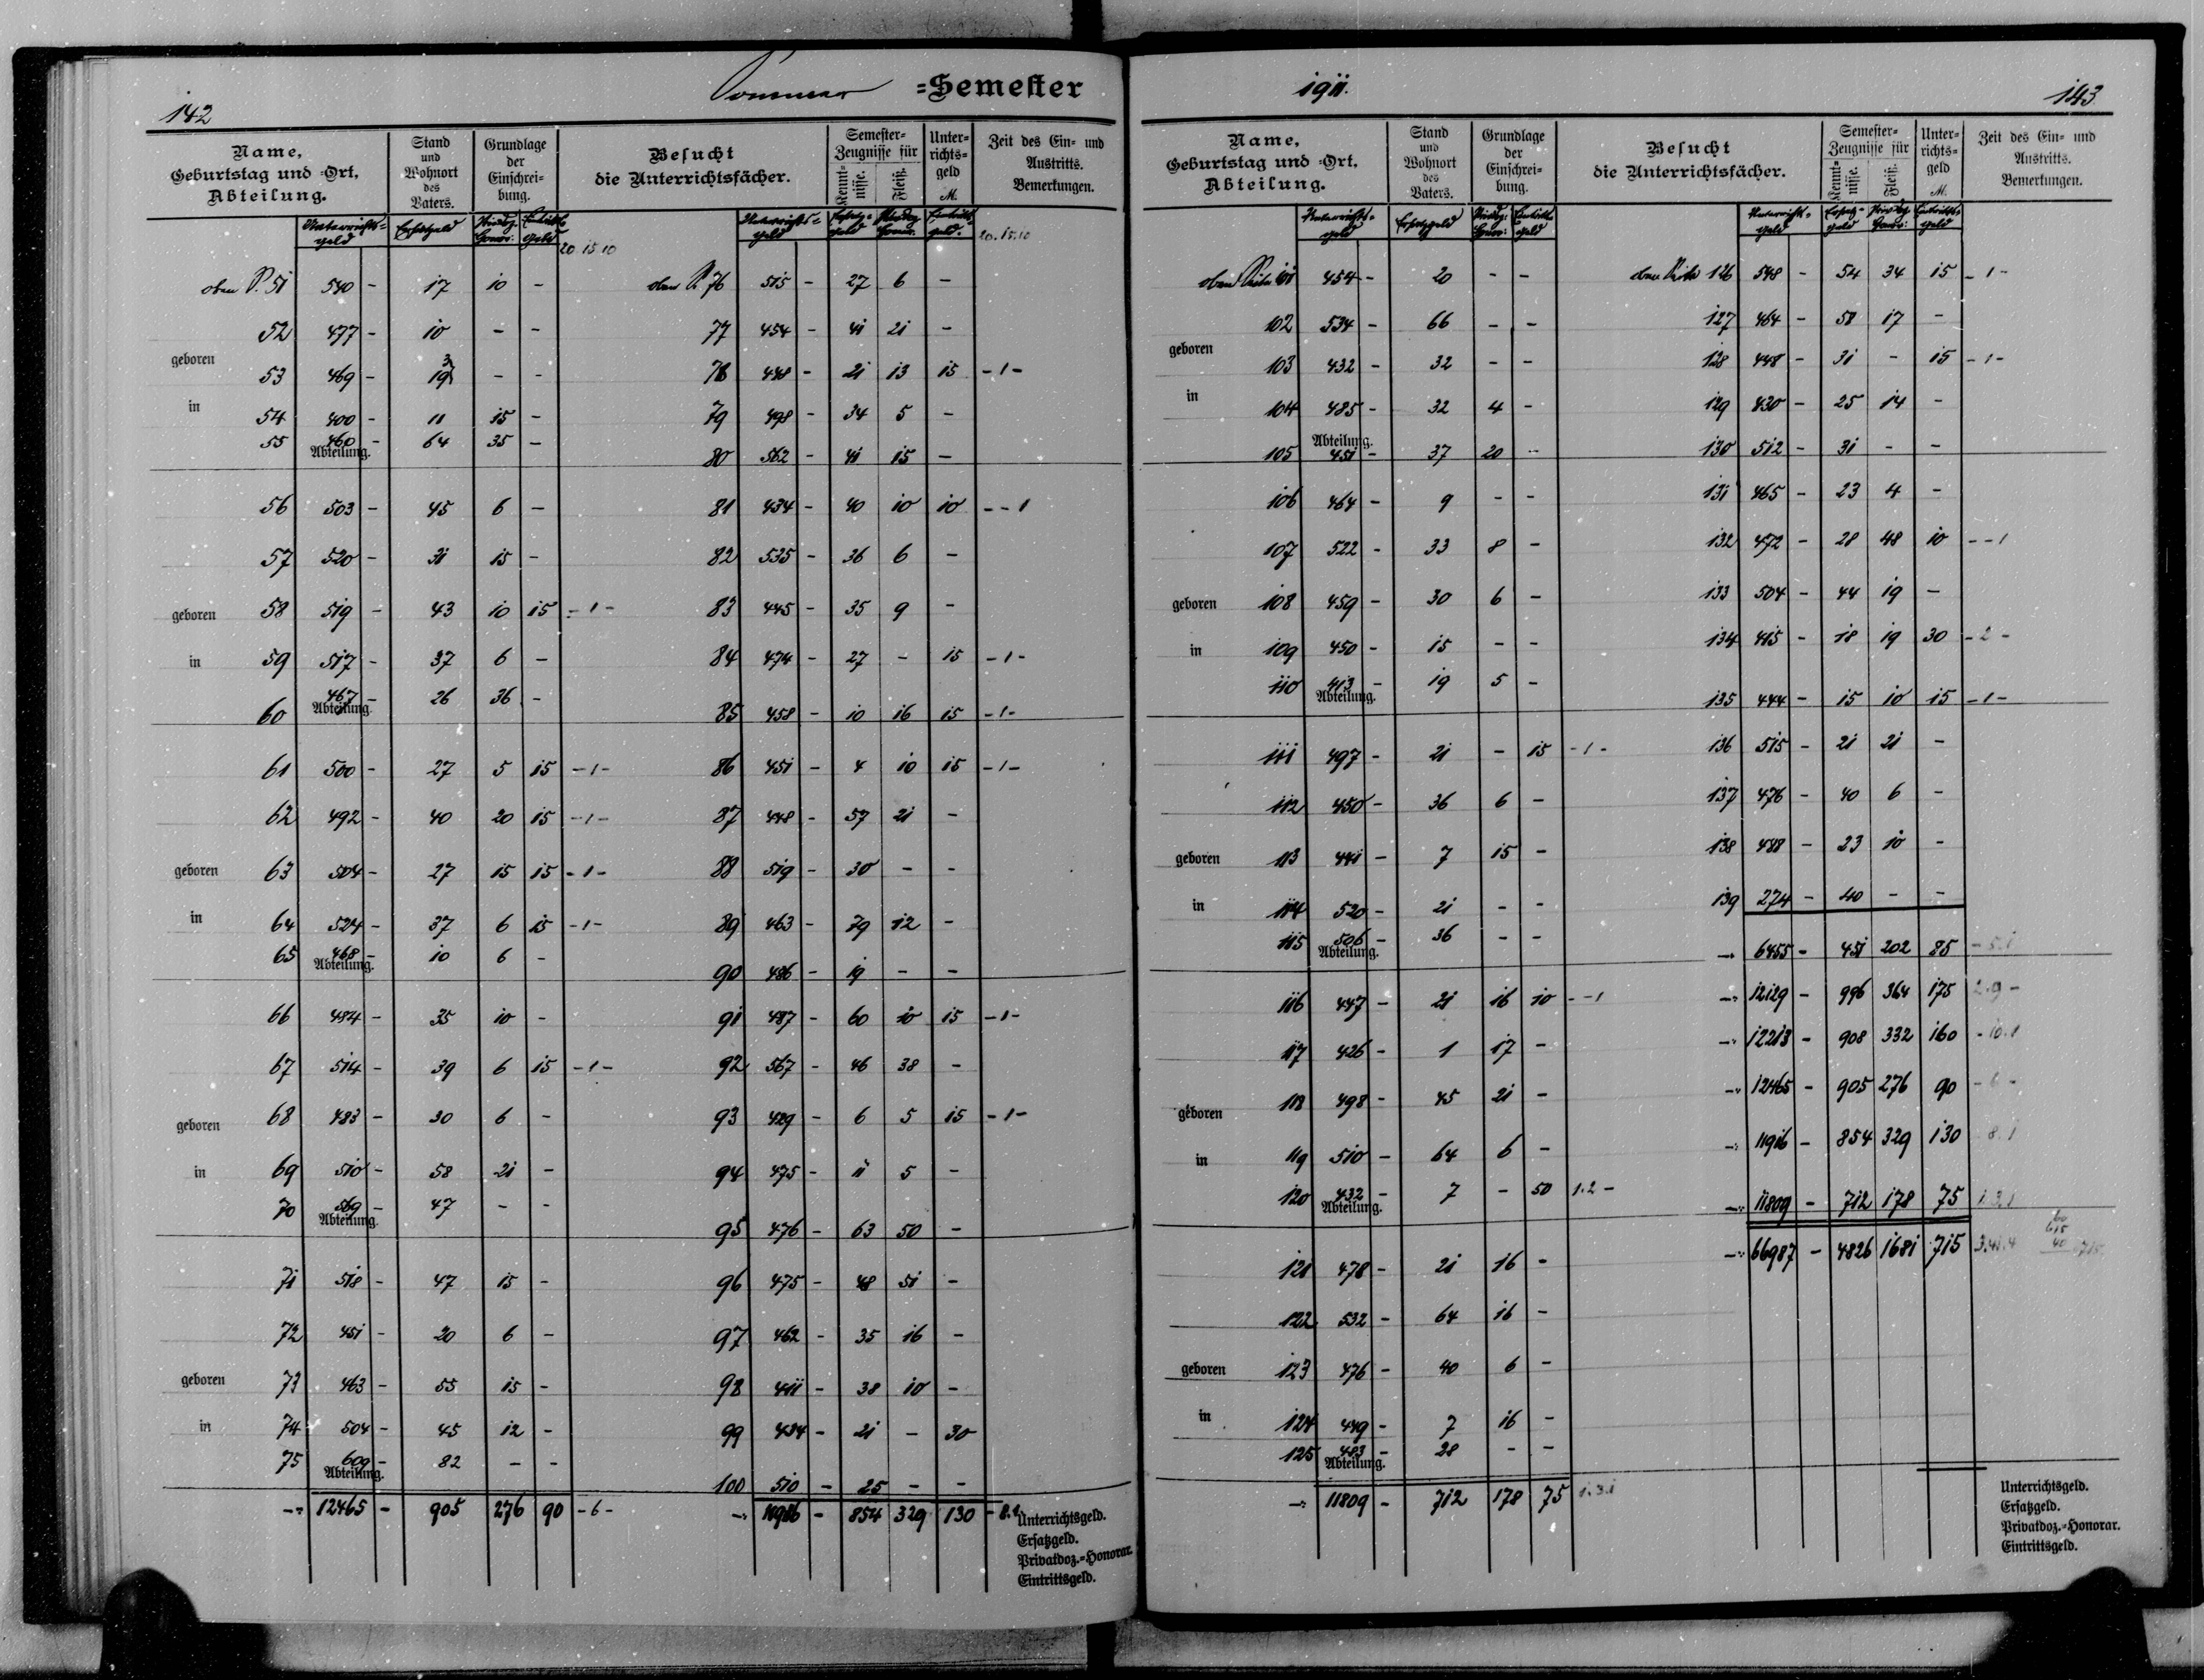 142
Sommer =Semester
Name,
Geburtstag und =Ort,
Abteilung.
Stand
und
Wohnort
des
Vaters.
Grundlage
der
Einschrei=
bung.
Besucht
die Unterrichtsfächer.
Semester=
Zeugnisse für
Kennt=
nisse.
Fleiß.
Unter=
richts=
geld
M.
Zeit des Ein= und
Austritts.
Bemerkungen.
Unterrichts=
geld
Ersatzgeld
Eintritts
geld
20 15 10
51 540 - 17 10 -
52 477 - 10 - -
geboren
53 469 - - -
in
54 400 - 11 15 -
55 460 - 64 35 -
Abteilung.
56 503 - 45 6 -
57 520 - 31 15 -
geboren 58 519 - 43 10 15 - 1 -
in 59 517 - 37 6 -
60 467 - 26 36 -
Abteilung.
61 500 - 27 5 15 - 1 -
62 492 - 40 20 15 - 1 -
geboren 63 504 - 27 15 15 - 1 -
in 64 524 - 37 6 15 - 1 -
65 468 - 10 6 -
Abteilung.
66 484 - 35 10 -
67 514 - 39 6 15 - 1 -
geboren 68 483 - 30 6 -
in 69 510 - 58 21 -
70 569 - 47 - -
Abteilung.
71 518 - 47 15 -
72 451 - 20 6 -
geboren 73 463 - 55 15 -
in 74 504 - 45 12 -
75 609 - 82 - -
Abteilung.
12465 - 905 276 90 - 6 -
Unterrichts=
geld
Ersatz=
geld
Eintritts
geld.
20. 15. 10
76 515 - 27 6 -
77 454 - 41 21 -
78 448 - 21 13 15 - 1 -
79 498 - 34 5 -
80 562 - 41 15 -
81 434 - 40 10 10 - - 1
82 535 - 36 6 -
83 445 - 35 9 -
84 474 - 27 - 15 - 1 -
85 458 - 10 16 15 - 1 -
86 451 - 4 10 15 - 1 -
87 448 - 57 21 -
88 519 - 30 - -
89 463 - 79 12 -
90 486 - 19 - -
91 487 - 60 10 15 - 1 -
92 567 - 46 38 -
93 429 - 6 5 15 - 1 -
94 475 - 11 5 -
95 476 - 63 50 -
96 475 - 48 51 -
97 462 - 35 16 -
98 411 - 38 10 -
99 434 - 21 - 30
100 510 - 25 - -
11916 - 854 329 130 - 8.1
Unterrichtsgeld.
Ersatzgeld.
Privatdoz.=Honorar.
Eintrittsgeld.
1911.
143
Name,
Geburtstag und =Ort,
Abteilung.
Stand
und
Wohnort
des
Vaters.
Grundlage
der
Einschrei=
bung.
Besucht
die Unterrichtsfächer.
Semester=
Zeugnisse für
Kennt=
nisse.
Fleiß.
Unter=
richts=
geld
M.
Zeit des Ein= und
Austritts.
Bemerkungen.
Unterrichts=
geld
Ersatzgeld
Eintritts
geld
oben Seite 101 454 - 20 - -
102 534 - 66 - -
geboren
103 432 - 32 - -
in
104 485 - 32 4 -
Abteilung.
105 451 - 37 20 -
106 464 - 9 - -
107 522 - 33 8 -
geboren 108 459 - 30 6 -
in 109 450 - 15 - -
110 413 - 19 5 -
Abteilung.
111 497 - 21 - 15 - 1 -
112 450 - 36 6 -
geboren 113 441 - 7 15 -
in 114 520 - 21 - -
115 506 - 36 - -
Abteilung.
116 447 - 21 16 10 - - 1
117 426 - 1 17 -
geboren 118 498 - 45 21 -
in 119 510 - 64 6 -
120 432 - 7 - 50 1.2 -
Abteilung.
121 478 - 21 16 -
122 532 - 64 16 -
geboren 123 476 - 40 6 -
in 124 449 - 7 16 -
125 483 - 28 - -
Abteilung.
11809 - 712 178 75 1.3.1
Unterrichts=
geld
Ersatz=
geld
Eintritts
geld
oben Seite 126 548 - 54 34 15 - 1 -
127 464 - 58 17 -
128 448 - 31 - 15 - 1 -
129 430 - 25 14 -
130 512 - 31 - -
131 465 - 23 4 -
132 472 - 28 48 10 - - 1
133 504 - 44 19 -
134 415 - 18 19 30 - 2 -
135 444 - 15 10 15 - 1 -
136 515 - 21 21 -
137 476 - 40 6 -
138 488 - 23 10 -
139 274 - 40 - -
6455 - 451 202 85 - 5.1
12129 - 996 364 175 2.9 -
12213 - 908 332 160 - 10.1
12465 - 905 276 90 - 6 -
11916 - 854 329 130 - 8.1
11809 - 712 178 75 1.3.1
66987 - 4826 1681 715 3.41.4
60
615
40
715.
Unterrichtsgeld.
Ersatzgeld.
Privatdoz.=Honorar.
Eintrittsgeld.